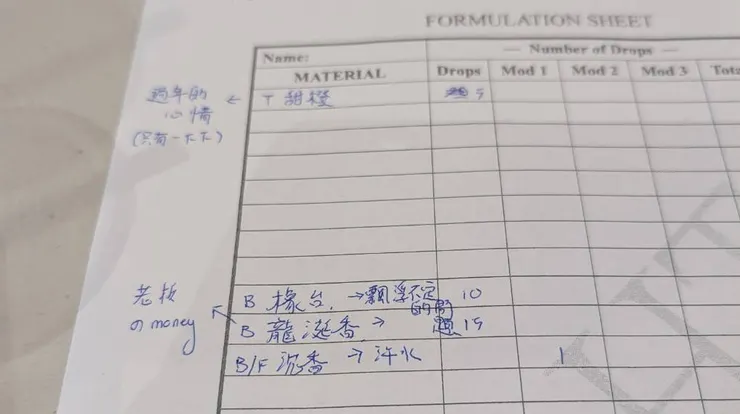 FORMULATION SHEET
Name:
— Number of Drops —
MATERIAL Drops Mod 1 Mod 2 Mod 3 Tota
過年的
心情
(只有一下下)
← T 甜橙 5
老板
の money
B 橡苔 → 飄浮不定 10
的
B 龍涎香 → 15
B/F 沉香 → 汗水 1